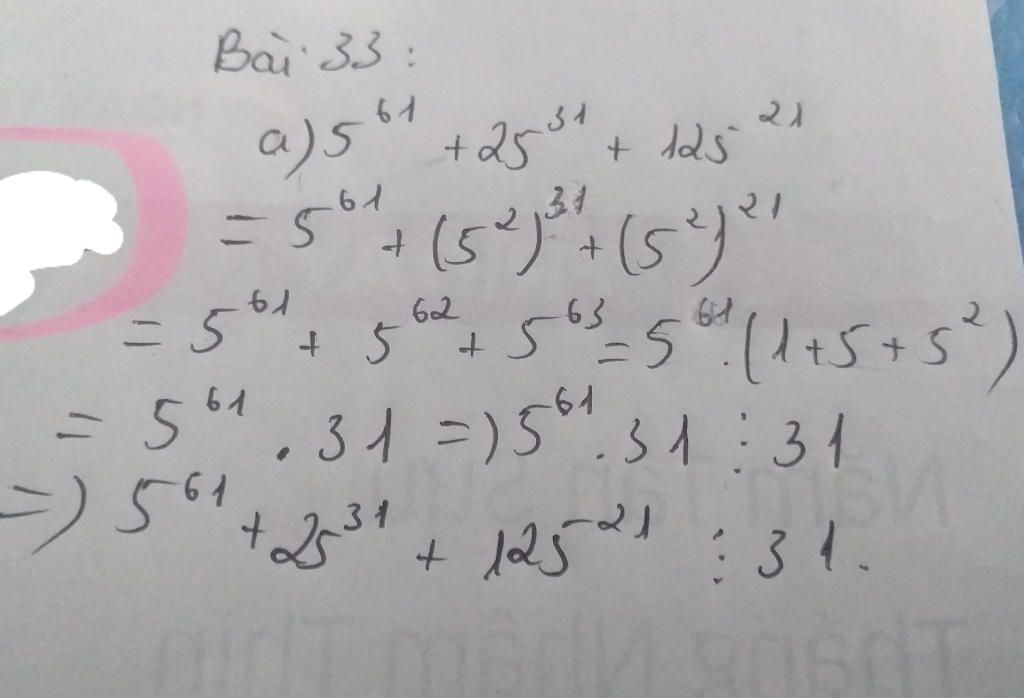 Bài 33:
a) 5^61 + 25^31 + 125^21
= 5^61 + (5^2)^31 + (5^2)^21
= 5^61 + 5^62 + 5^63 = 5^61 . (1 + 5 + 5^2)
= 5^61 . 31 => 5^61 . 31 ⋮ 31
=> 5^61 + 25^31 + 125^21 ⋮ 31.
Năm Tân Sửu
Tháng Nhâm Thìn